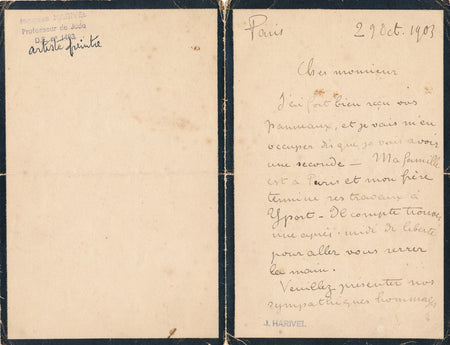 Professeur de Judo
artiste peintre
Paris 29 Oct. 1903
Cher monsieur
J'ai fort bien reçu vos
panneaux, et je vais m'en
occuper dès que je vais avoir
une seconde — Ma famille
est à Paris et mon frère
termine ses travaux à
Yport — Il compte trouver
une après-midi de liberté
pour aller vous serrer
la main.
Veuillez présenter nos
sympathiques hommages
J. HARIVEL